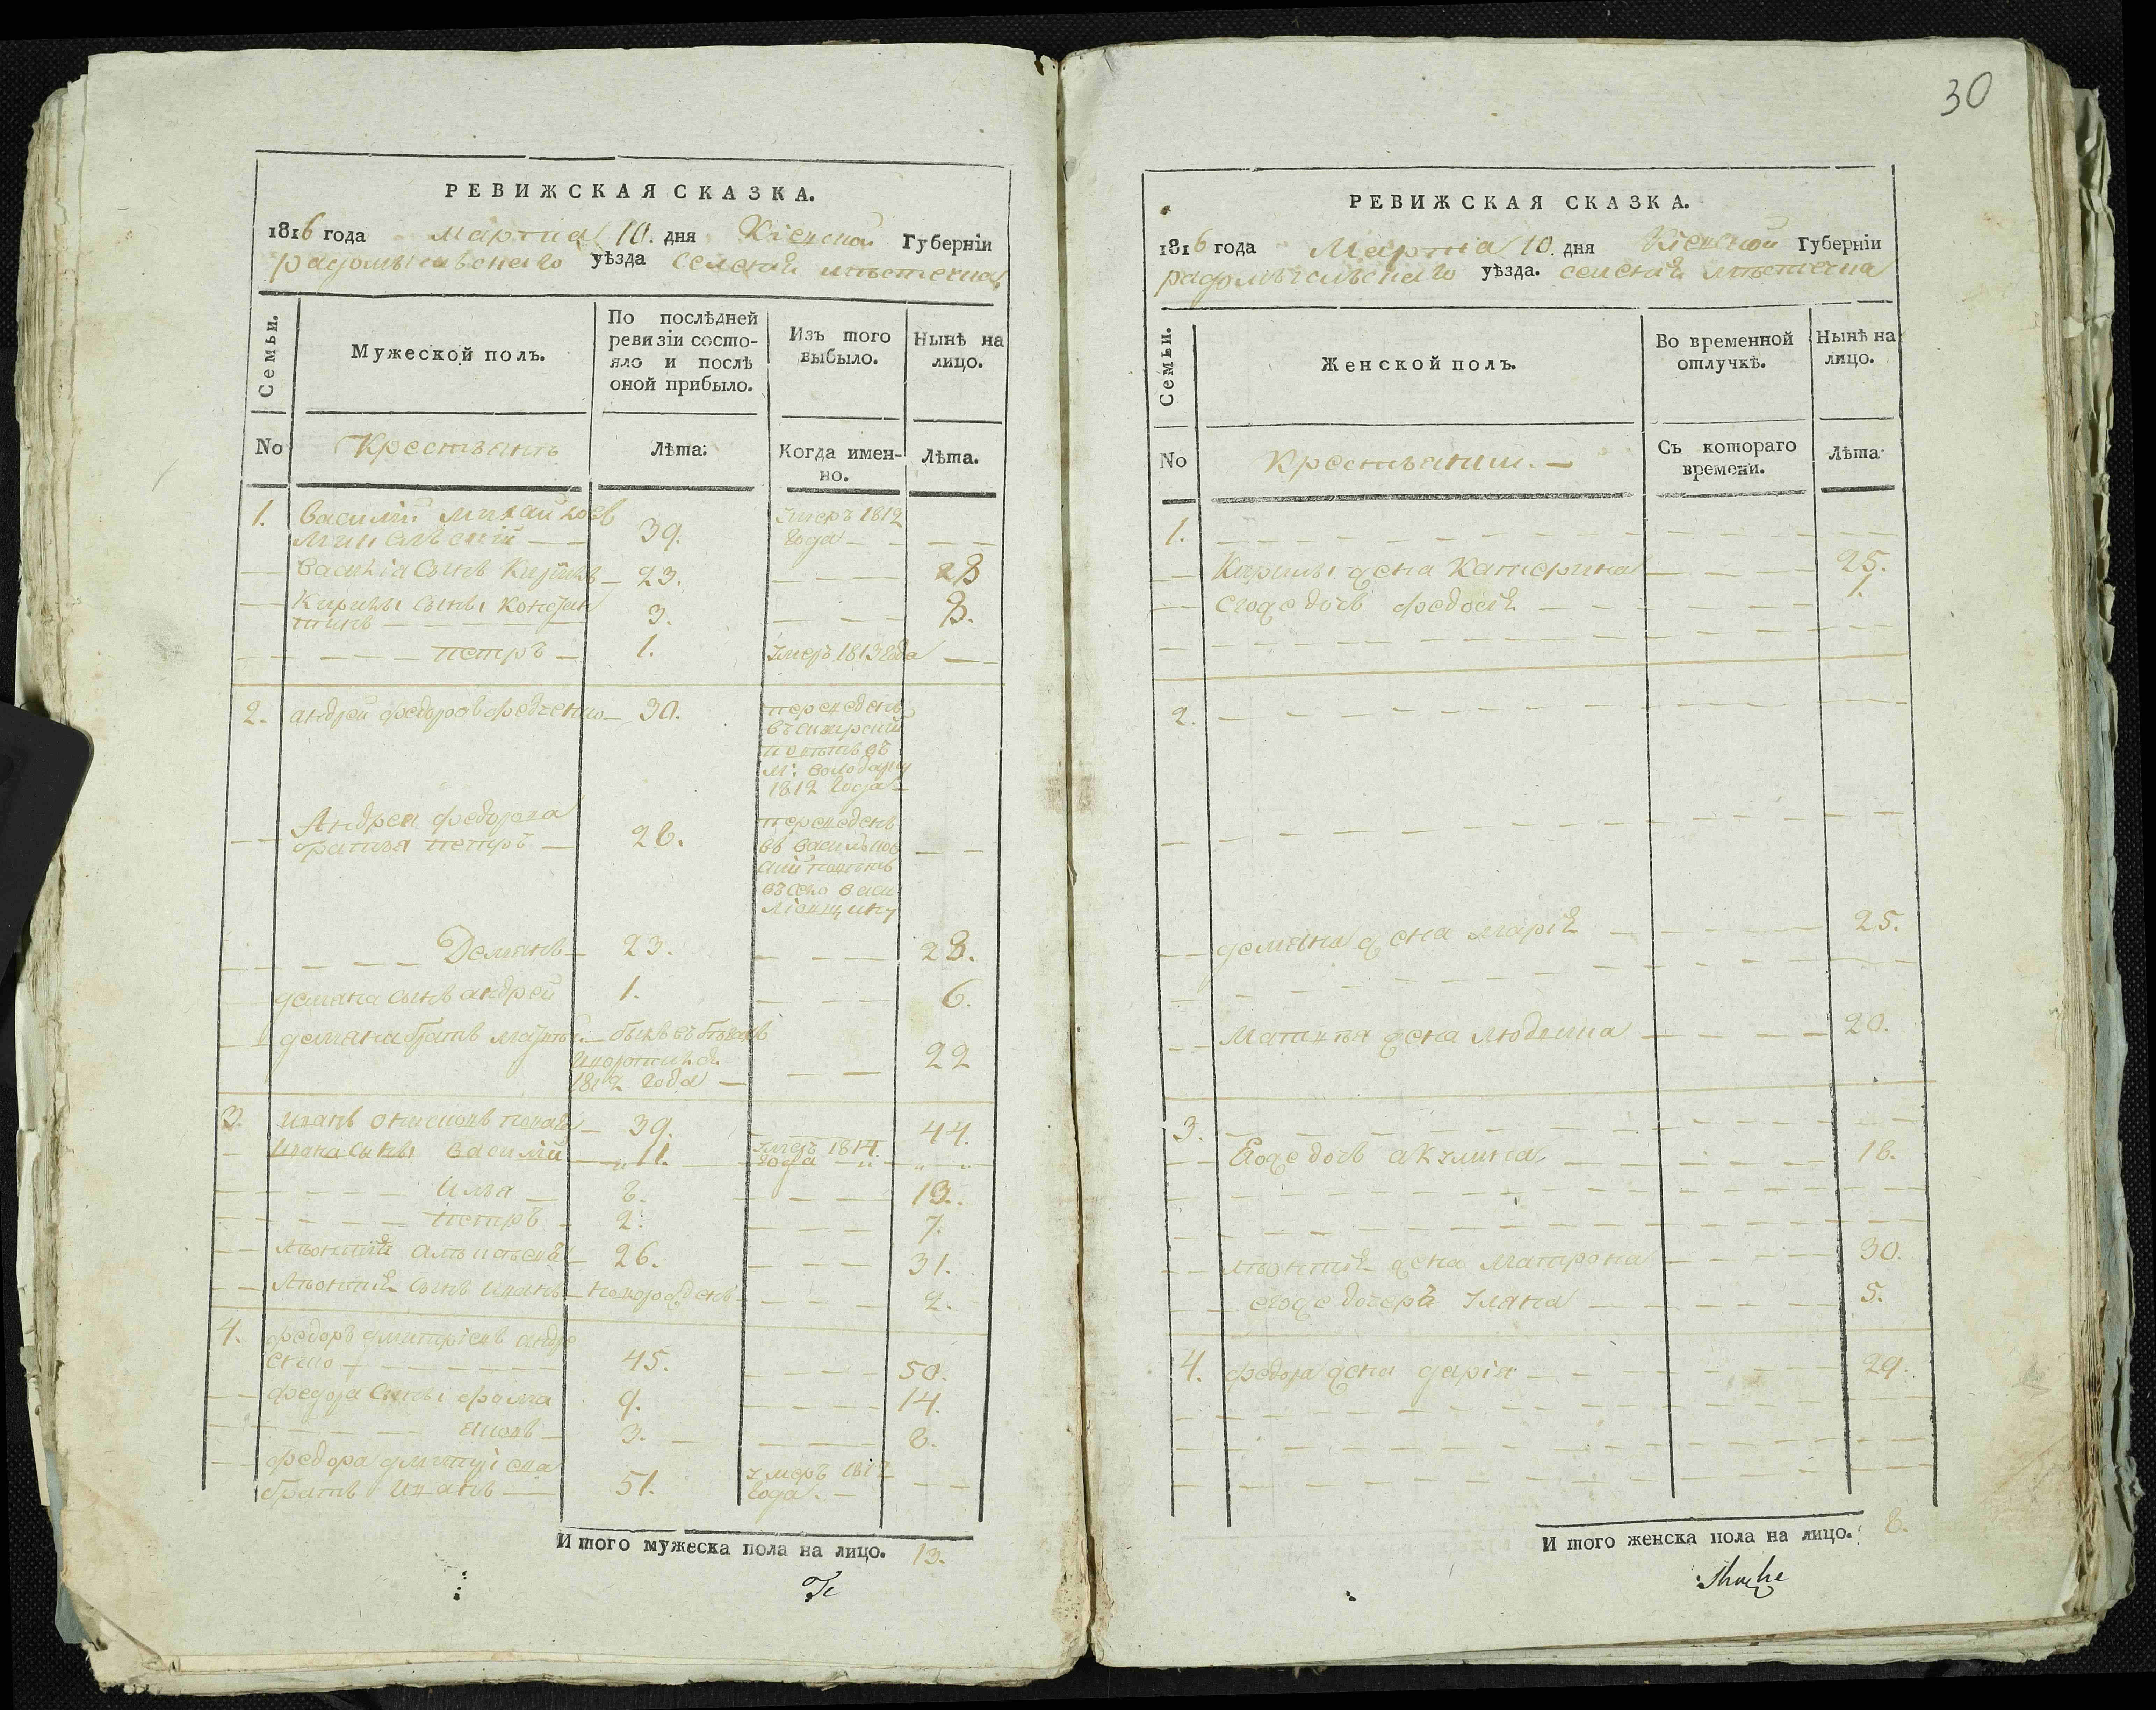 30
РЕВИЖСКАЯ СКАЗКА.
1816 года Мартиа 10. дня Кіевской Губерніи
радомысльского уѣзда мѣстечка
Семьи.
Мужеской полъ.
По послѣдней
ревизіи состо-
яло и послѣ
оной прибыло.
Изъ того
выбыло.
Нынѣ на
лицо.
No
Крестьянъ
Лѣта.
Когда имен-
но.
Лѣта.
1. Василій Михайловъ 39. умеръ 1812
года
Василіа сынъ Кирило 23. 28
Кирилы сынъ Констан
тинъ 3. 8.
петръ 1. умеръ 1813 года
2. андрей федоровъ федченко 30. переведенъ
въ
повѣтъ въ
м: володарку
1812 года
Андрея федорова
братья петръ 26. переведенъ
въ васильков
скій повѣтъ
въ село васи
лювщину
Демянъ 23. 28.
демяна сынъ андрей 1. 6.
демяна братъ матвѣй былъ въ бѣгахъ
1812 года 22
3. иванъ 39. 44.
ивана сыны василій 11. умеръ 1814.
года
илья 8. 13.
петръ 2. 7.
26. 31.
сынъ иванъ новорожденъ 2.
4. федоръ дмитріевъ андре
енко 45. 50.
федора сыны фома 9. 14.
яковъ 3. 8.
федора дмитріева
братъ иванъ 51. умеръ 1812
года.
Итого мужеска пола на лицо. 13.
РЕВИЖСКАЯ СКАЗКА.
1816 года Мартіа 10. дня Кіевской Губерніи
радомысльского уѣзда. мѣстечка
Семьи.
Женской полъ.
Во временной
отлучкѣ.
Нынѣ на
лицо.
No
Крестьянки.
Съ котораго
времени.
Лѣта
1.
Кирилы жена Катерина 25.
егоже дочь федосія 1.
2.
демяна жена марія 25.
Матвѣя жена людвика 20.
3.
Егоже дочь акулина 16.
жена матрона 30.
егоже дочерь уляна 5.
4. федора жена дарія 29.
Итого женска пола на лицо. 8.